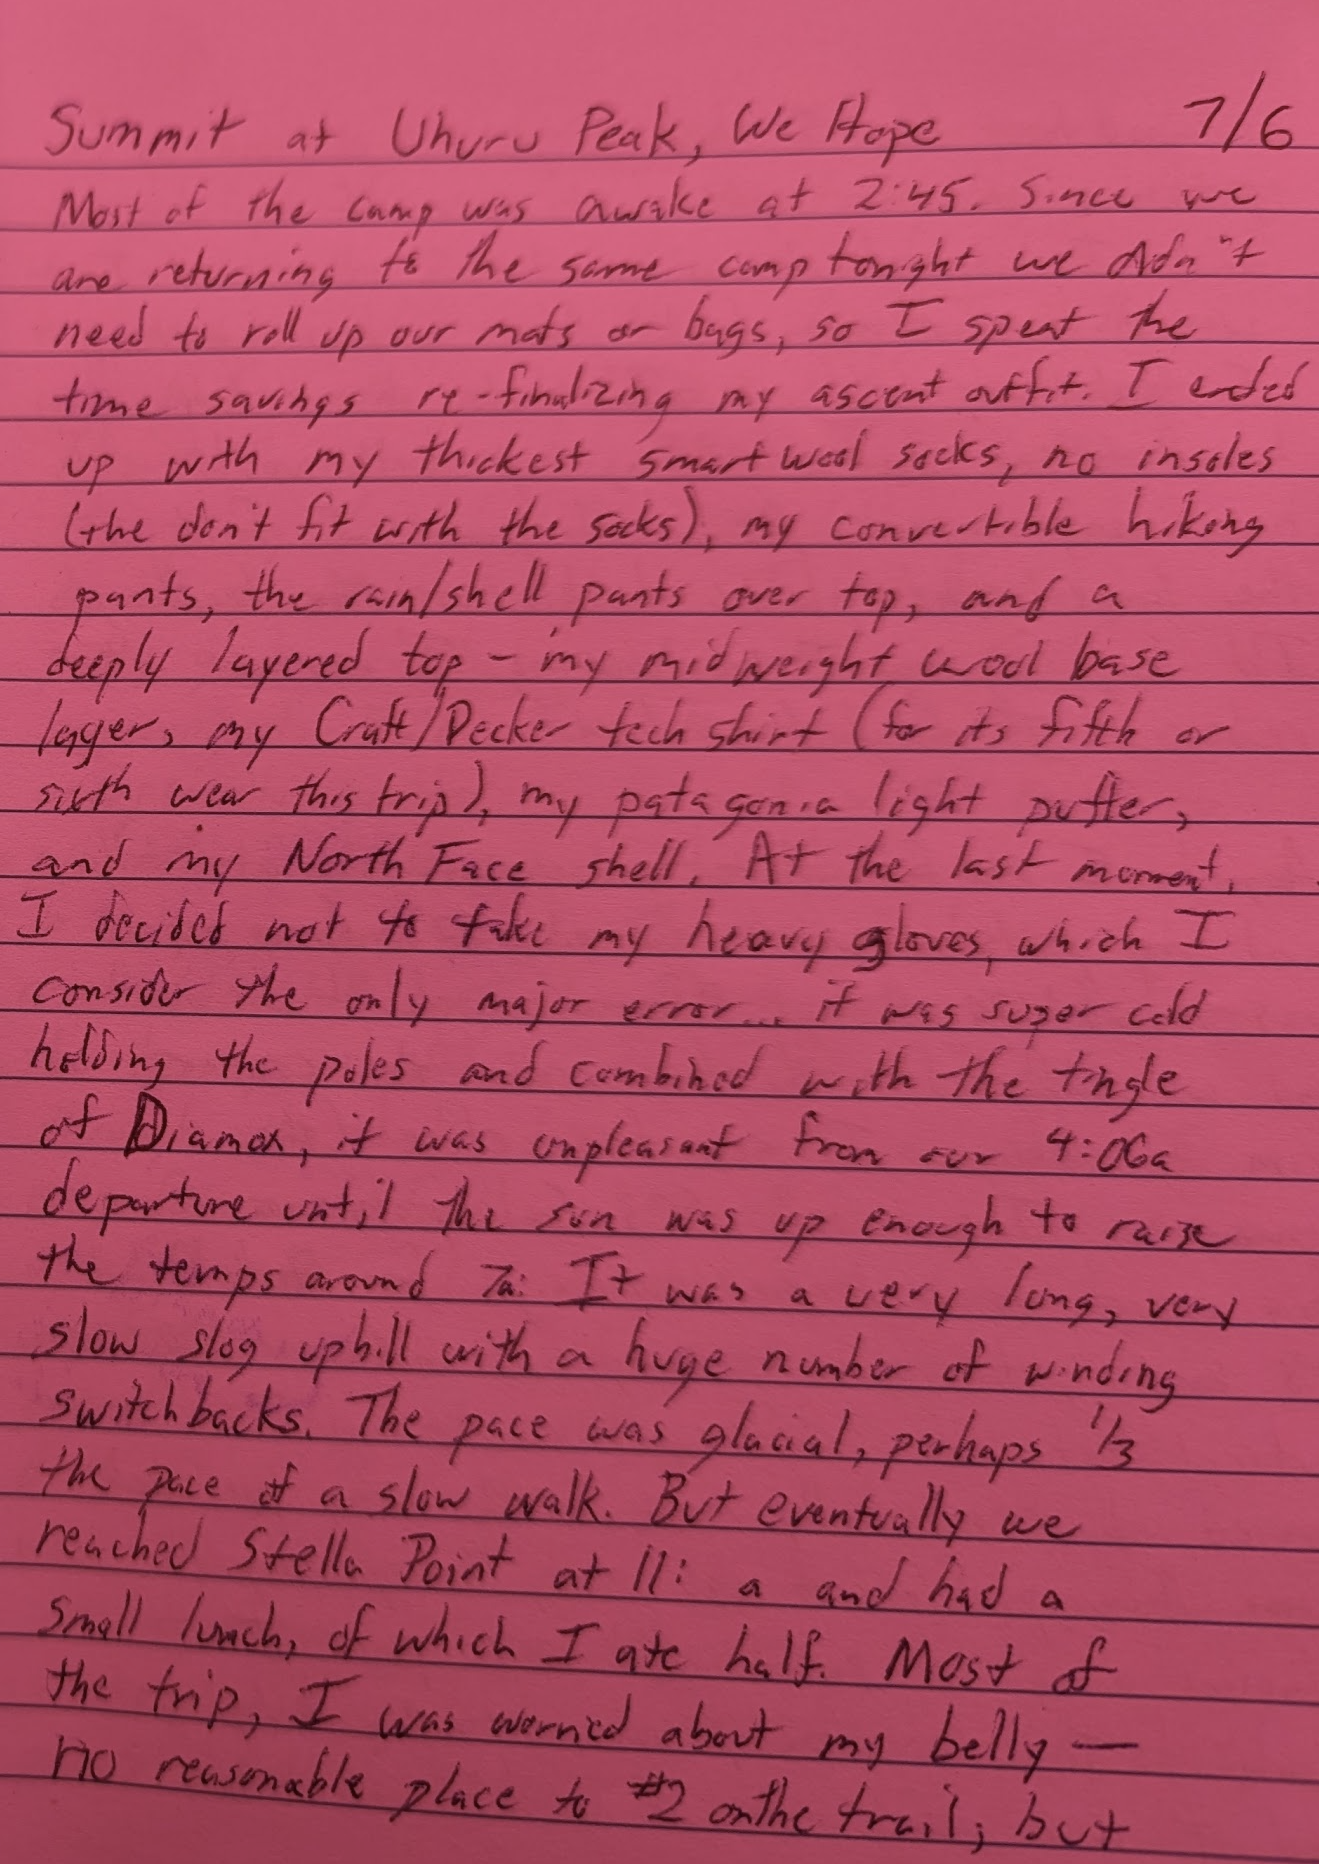 Summit at Uhuru Peak, We Hope 7/6
Most of the camp was awake at 2:45. Since we
are returning to the same camp tonight we didn't
need to roll up our mats or bags, so I spent the
time savings re-finalizing my ascent outfit. I ended
up with my thickest smartwool socks, no insoles
(the don't fit with the socks), my convertible hiking
pants, the rain/shell pants over top, and a
deeply layered top - my midweight wool base
layer, my Craft/Decker tech shirt (for its fifth or
sixth wear this trip), my patagonia light puffer,
and my North Face shell. At the last moment,
I decided not to take my heavy gloves, which I
consider the only major error... it was super cold
holding the poles and combined with the tingle
of Diamox, it was unpleasant from our 4:06a
departure until the sun was up enough to raise
the temps around 7a. It was a very long, very
slow slog uphill with a huge number of winding
switchbacks. The pace was glacial, perhaps 1/3
the pace of a slow walk. But eventually we
reached Stella Point at 11: a and had a
small lunch, of which I ate half. Most of
the trip, I was worried about my belly —
no reasonable place to #2 on the trail, but